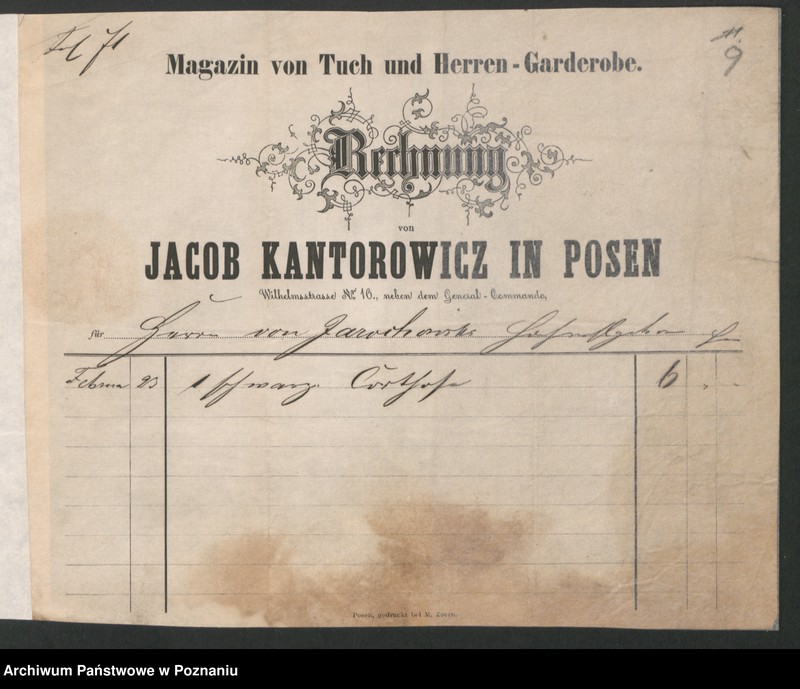 Fol 71
9
Magazin von Tuch und Herren-Garderobe.
Rechnung
von
JACOB KANTOROWICZ IN POSEN
Wilhelmsstrasse No. 16., neben dem General-Commando,
für Herrn von Jarochowski
Februar 23 1 schwarz. 6 " -
Posen, gedruckt bei M. Zoern.
Archiwum Państwowe w Poznaniu